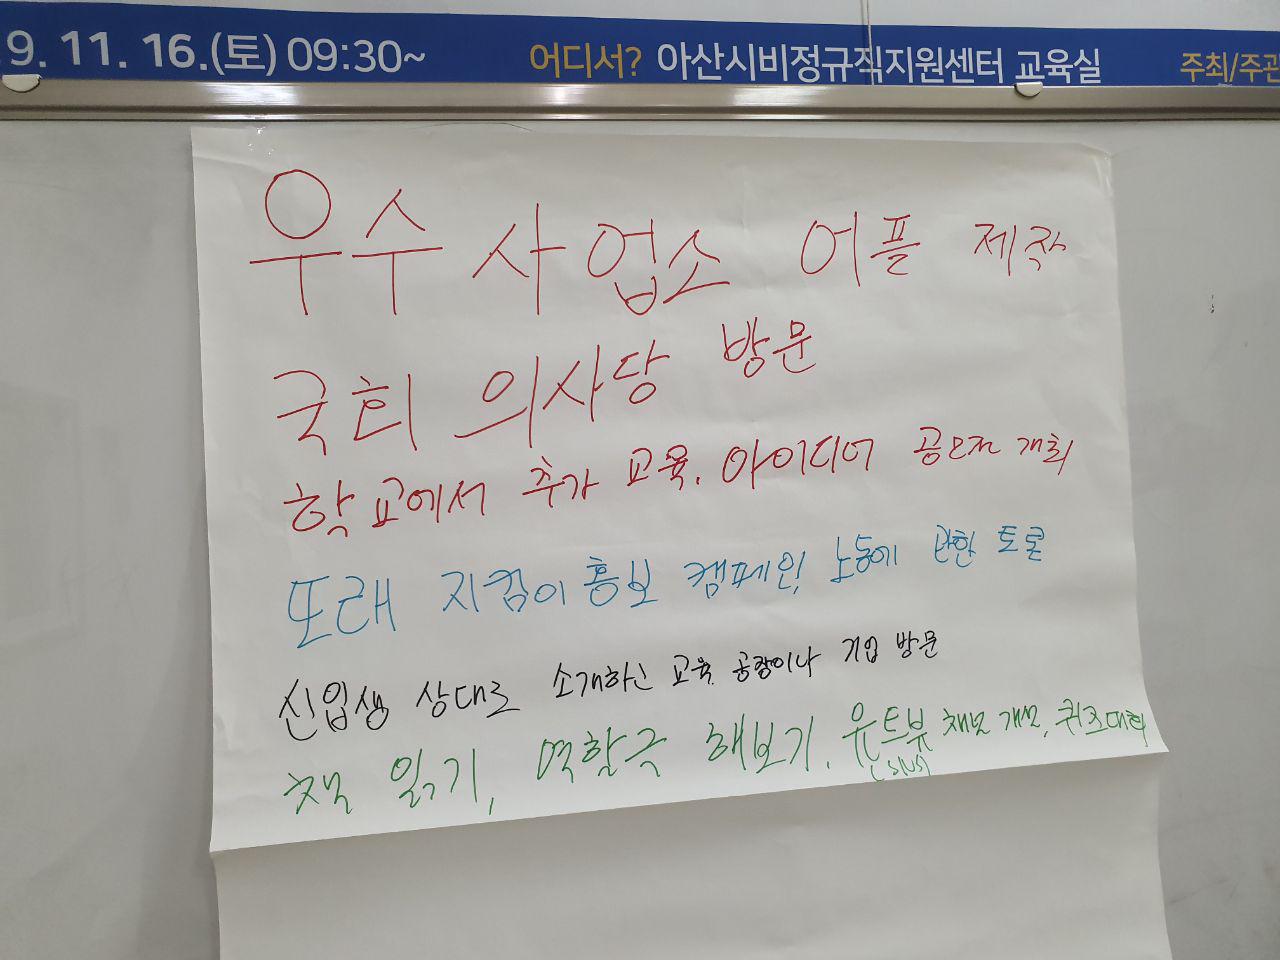 9. 11. 16.(토) 09:30~ 어디서? 아산시비정규직지원센터 교육실 주최/주관
우수 사업소 어플 제작
국회 의사당 방문
학교에서 추가 교육. 아이디어 공모전 개최
또래 지킴이 홍보 캠페인, 노동에 관한 토론
신입생 상대로 소개하는 교육 공장이나 기업 방문
책 읽기, 역할극 해보기. 유트뷰 채널 개설, 퀴즈대회
(SNS)